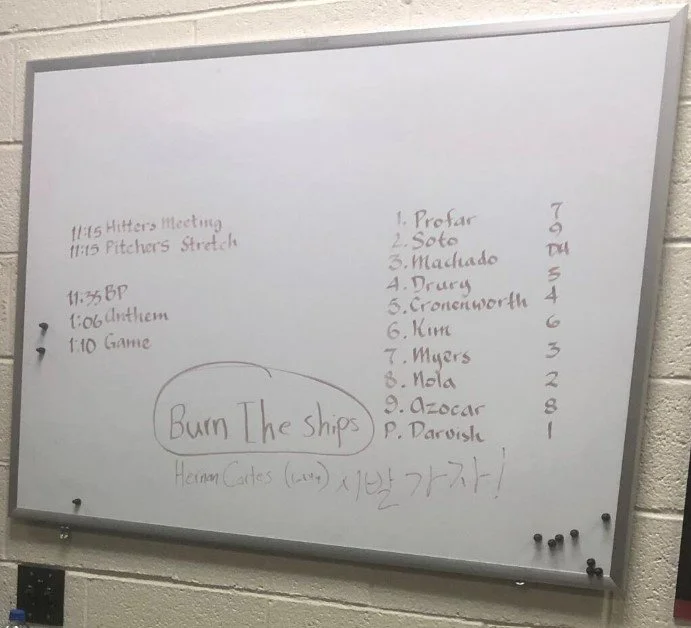 11:15 Hitters Meeting
11:15 Pitchers Stretch
11:35 BP
1:06 Anthem
1:10 Game
1. Profar 7
2. Soto 9
3. Machado DH
4. Drury 5
5. Cronenworth 4
6. Kim 6
7. Myers 3
8. Nola 2
9. Azocar 8
P. Darvish 1
Burn The ships
Hernan Cortes 시발 가자!